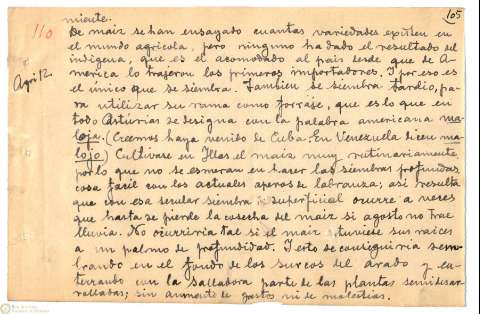 105
110
miente.
De maiz se han ensayado cuantas variedades existen en
el mundo agrícola, pero ninguno ha dado el resultado del
indígena, que es el acomodado al país desde que de A-
mérica lo trajeron los primeros importadores. I por eso es
el único que se siembra. Tambien se siembra tardio, pa-
ra utilizar su rama como forraje, que es lo que en
todo Astúrias se designa con la palabra americana ma-
loja. (Creemos haya venido de Cuba. En Venezuela dicen ma-
lojo) Cultivase en Illas el maiz muy rutinariamente,
por lo que no se esmeran en hacer las siembras profundas,
cosa fácil con los actuales aperos de labranza; asi resulta
que con esa secular siembra superficial ocurre a veces
que hasta se pierde la cosecha del maiz si agosto no trae
lluvia. No ocurriría tal si el maiz tuviese sus raices
a un palmo de profundidad. I esto se conseguiria sem-
brando en el fondo de los surcos del arado y en-
terrando con la salladora parte de las plantas semidesar-
rolladas; sin aumento de gastos ni de molestias.
Agri 12